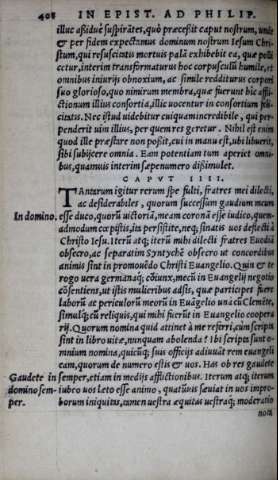 408 IN EPIST. AD PHILIP.
illuc aßiduè suspirātes, quò præceßit caput nostrum, unde
& per fidem expectamus dominum nostrum Iesum Chri-
stum, qui resuscitatis mortuis palā exhibebit ea, quæ polli
cetur, interim transformaturus hoc corpusculū humile, et
omnibus iniurijs obnoxium, ac simile redditurus corpori
suo glorioso, quo nimirum membra, quæ fuerunt hic affli-
ctionum illius consortia, illic uocentur in consortium feli-
citatis. Nec istud uidebitur cuiquam incredibile, qui per-
penderit uim illius, per quem res geretur. Nihil est enim
quod ille præstare non poßit, cui in manu est, ubi libuerit,
sibi subijcere omnia. Eam potentiam tum aperiet omni-
bus, quamuis interim sæpenumero dißimulet.
CAPVT IIII.
TAntarum igitur rerum spe fulti, fratres mei dilecti,
ac desiderabiles, quorum successum gaudium meum
In domino. esse duco, quorū uictoriā, meam coronā esse iudico, quem-
admodum cœpistis, ita persistite, neq; sinatis uos deflecti à
Christo Iesu. Iterū atq; iterū mihi dilecti fratres Euodiā
obsecro, ac separatim Syntychē obsecro ut concordibus
animis sint in promouēdo Christi Euangelio. Quin & te
rogo uera germanaq; coniunx, mecū in Euangelij negotio
cōsentiens, ut istis mulieribus adsis, quæ participes fuere
laborū ac periculorū meorū in Euāgelio unà cū Clemēte,
simulq; cū reliquis, qui mihi fuerūt in Euangelio coopera
rij. Quorum nomina quid attinet à me referri, cùm scripta
sint in libro uitæ, nunquam abolenda? Ibi scripta sunt o-
mnium nomina, quicūq; suis officijs adiuuāt rem euangeli
cam, quorum de numero estis & uos. Has ob res gaudete
Gaudete in semper, etiam in medijs afflictionibus. Iterum atq; iterum
domino sem- iubeo uos læto esse animo, quatūuis sæuiat in uos impro-
per. borum iniquitas, tamen uestra æquitas uestraq; moderatio
nota